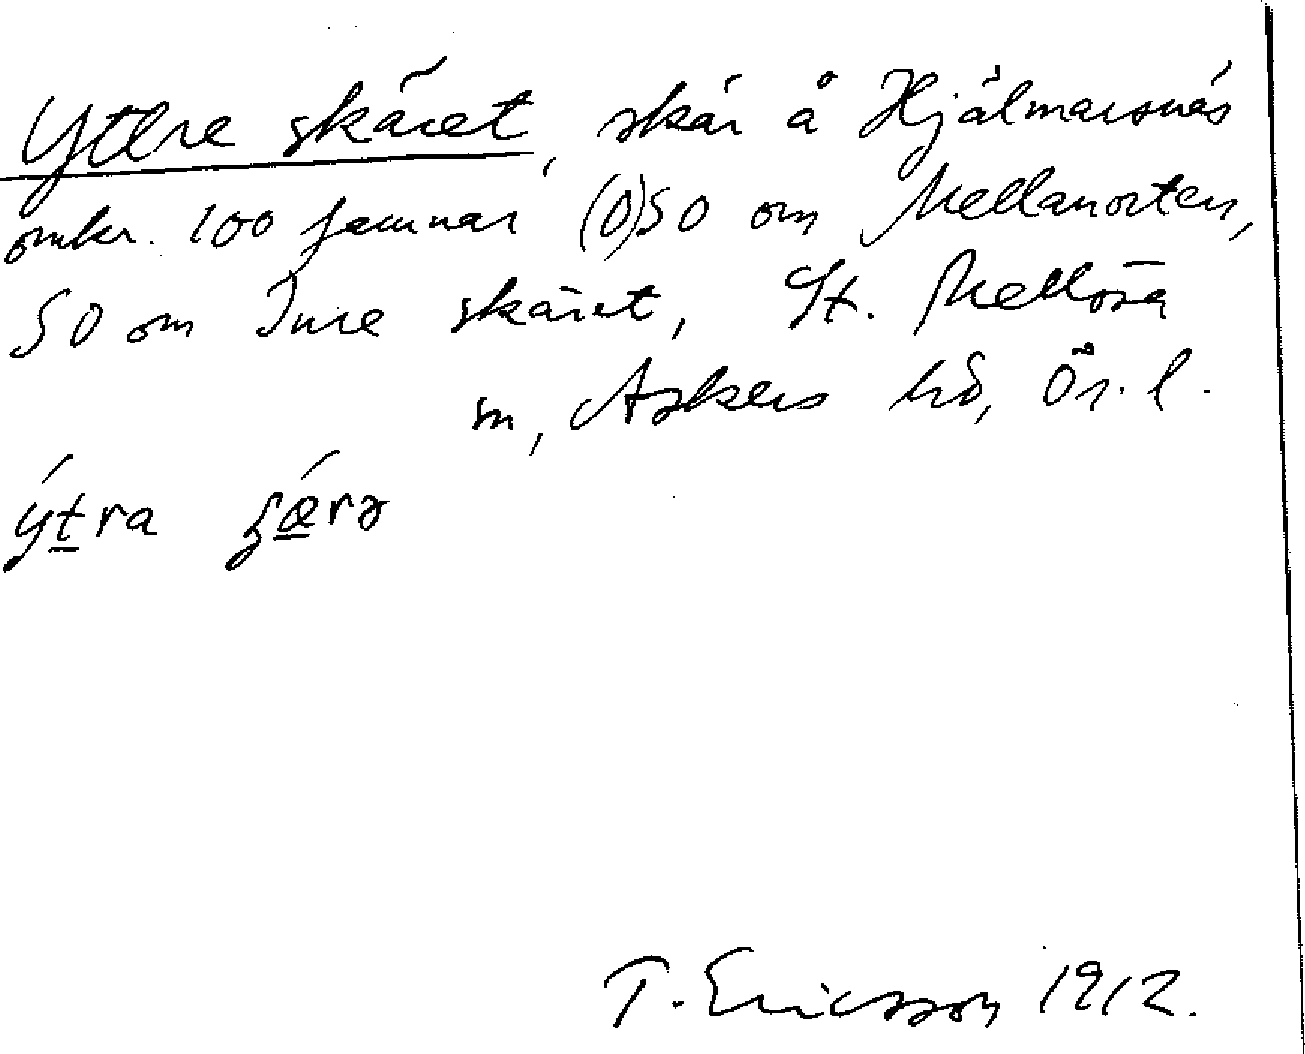 Yttre skäret, skär å Hjälmarsnäs
omkr. 100 famnar (O)SO om Mellanorten,
SO om Inre skäret, St. Mellösa
sn, Askers hd, Ör. l.
ýt̲ra ʂǽ̲rə
T. Ericsson 1912.